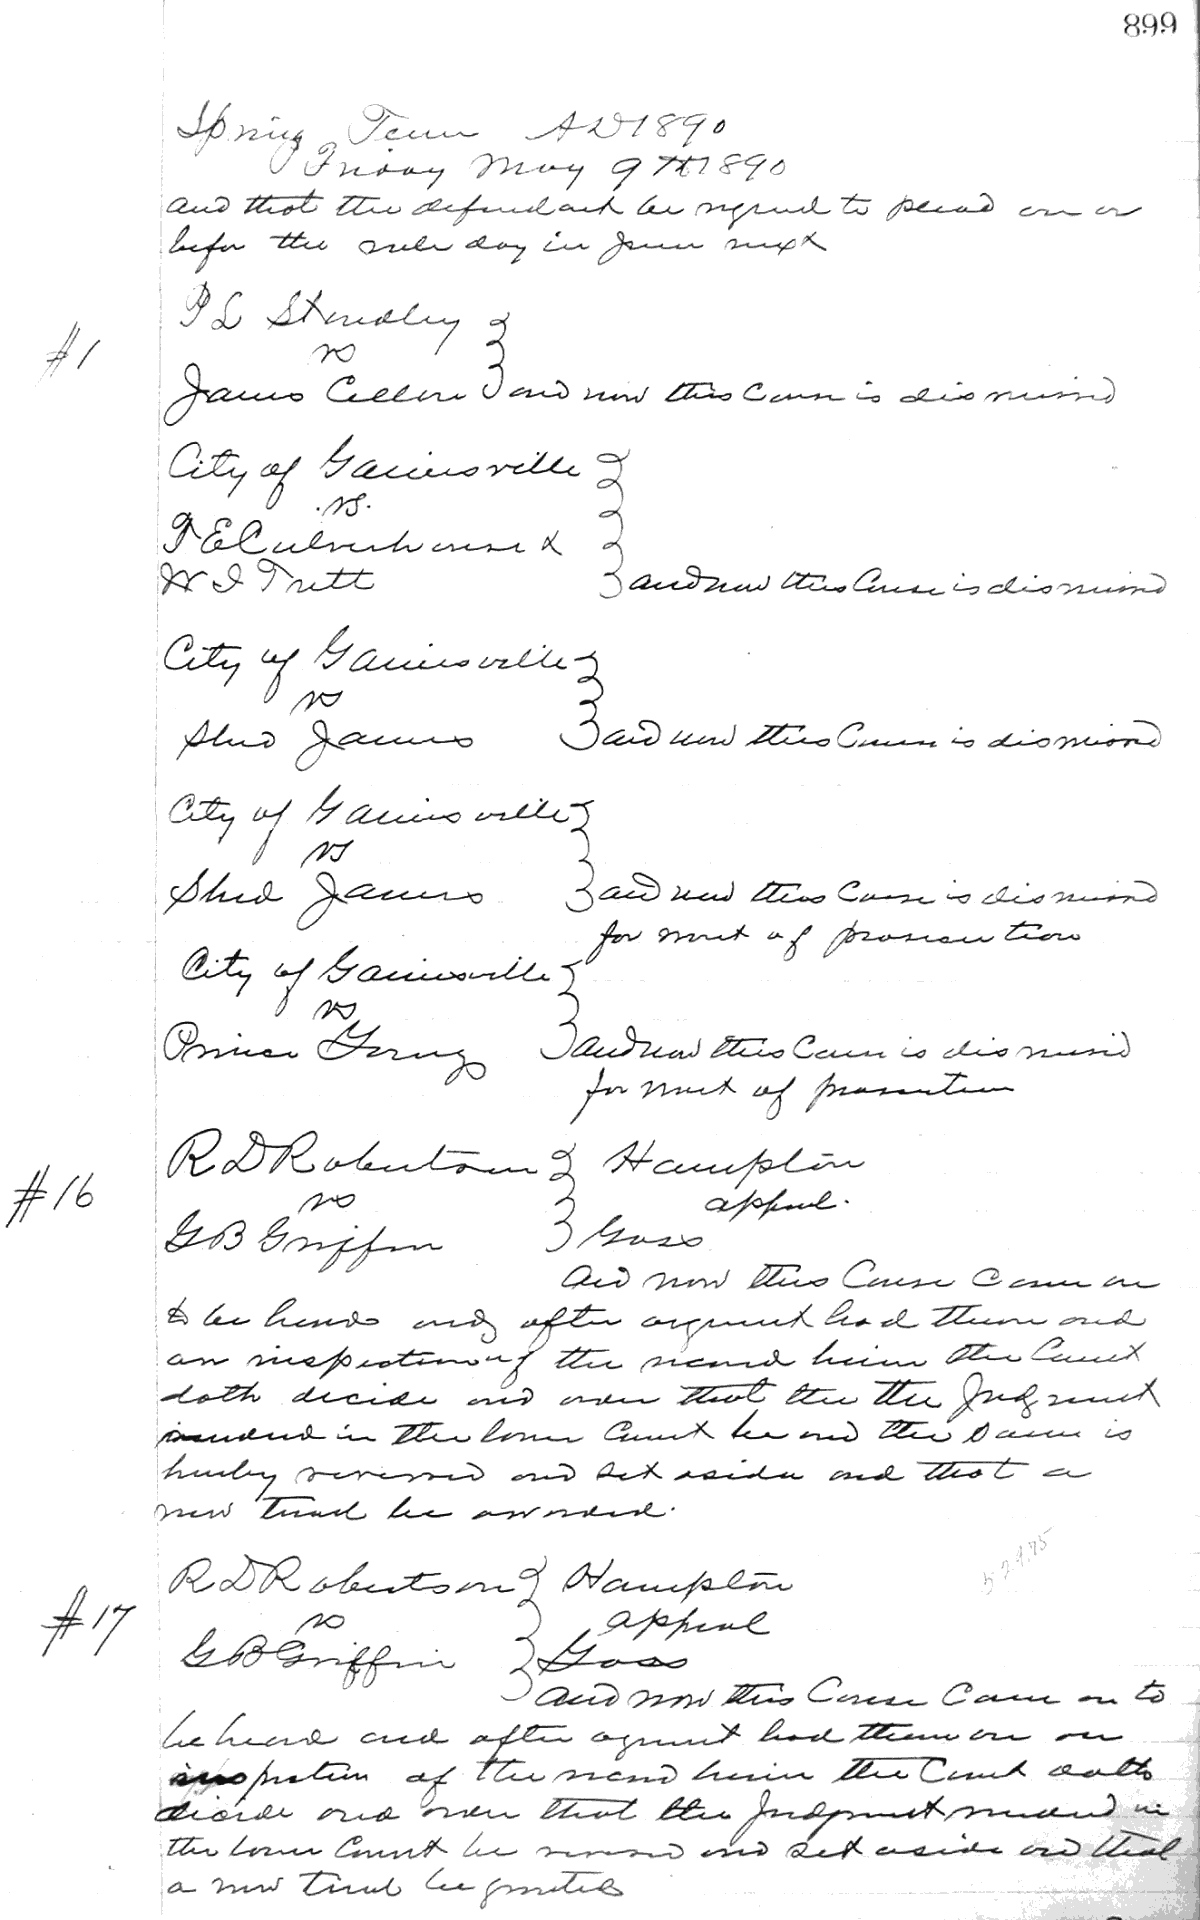 899
Spring Term AD 1890
Friday May 9th 1890
and that the defendant be required to plead on or
before the rule day in June next
#1
P L Standley
vs
James Cellon and now this Cause is dismissed
City of Gainesville
vs.
T E Culverhouse &
W I Trett and now this Cause is dismissed
City of Gainesville
vs
Shed James and now this Cause is dismissed
City of Gainesville
vs
Shed James and now this Cause is dismissed
for want of prosecution
City of Gainesville
vs
Prince and now this Cause is dismissed
for want of prosecution
#16
R D Robertson Hampton
vs appeal.
G B Griffin Goss
And now this Cause came on
to be heard and after argument had thereon and
an inspection of the record herein the Court
doth decide and order that the the Judgment
rendered in the lower Court be and the same is
hereby reversed and set aside and that a
new trial be awarded.
5.29.75
#17
R D Robertson Hampton
vs appeal
G B Griffin Goss
and now this Cause came on to
be heard and after argument had thereon on
inspection of the record herein the Court doth
decide and order that the Judgment rendered in
the lower Court be reversed and set aside and that
a new trial be granted